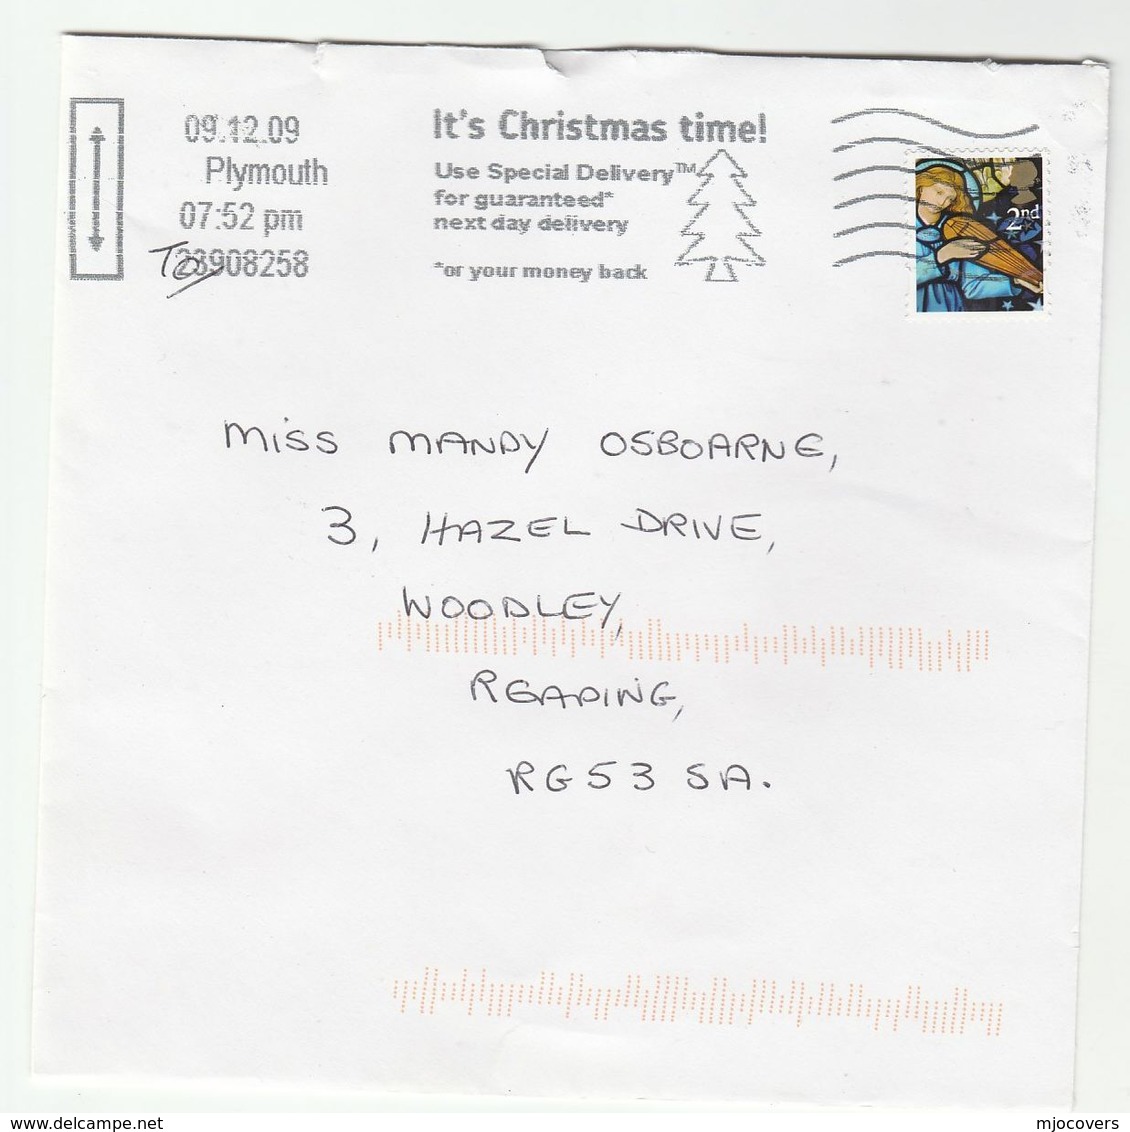 09.12.09
Plymouth
07:52 pm
28908258
To
It's Christmas time!
Use Special Delivery™
for guaranteed*
next day delivery
*or your money back
2nd
MISS MANDY OSBOARNE,
3, HAZEL DRIVE,
WOODLEY,
READING,
RG53 SA.
www.delcampe.net
mjocovers